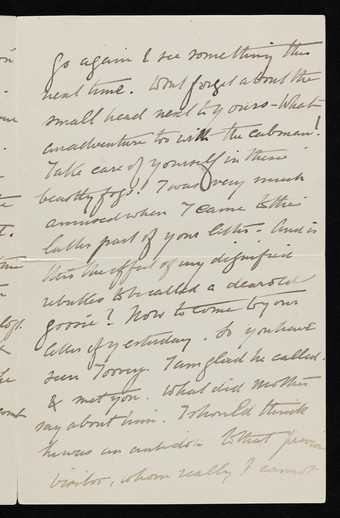 go again & see something the
next time. Dont forget about the
small head next to yours - What
an adventure too with the cabman!
Take care of yourself in these
beastly fogs. I was very much
amused when I came to the
latter part of your letter. And is
this the effect of my dignified
rebukes to be called a dear old
goose? Now to come to your
letter of yesterday. So you have
seen Tommy. I am glad he called.
& met you. What did mother
say about him. I should think
he was an antidote to that
visitor, whom really I cannot